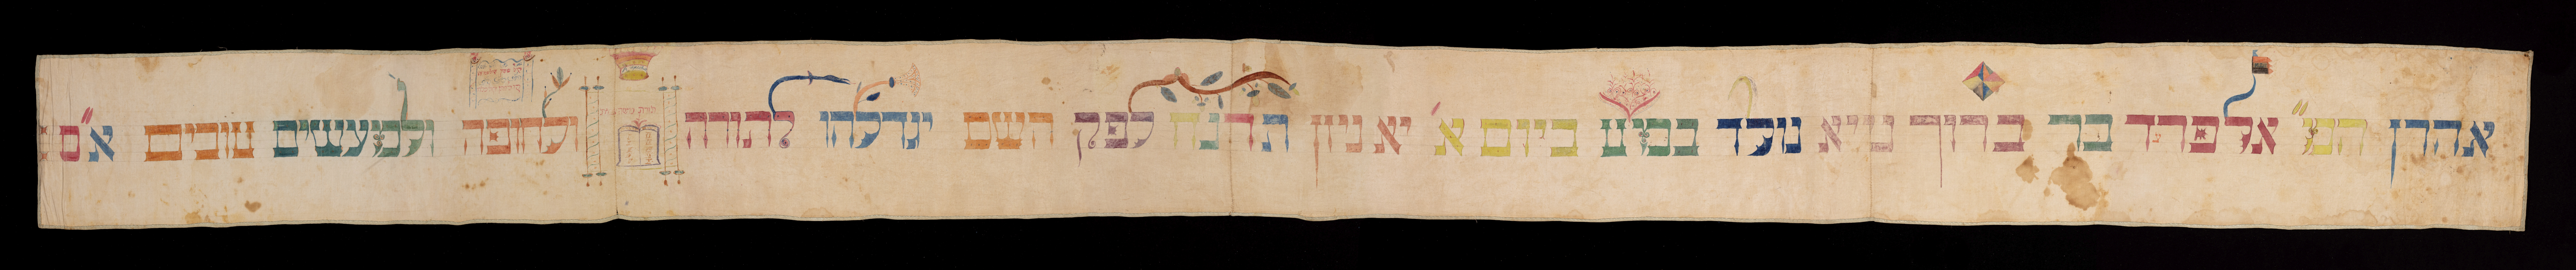 אהרן המ״ אלפרד בר ברוך נייא נולד במ״ט ביום א׳ יא ניסן תרנח לפק השם יגדלהו לתורה ולחופה ולמעשים טובים א״ס